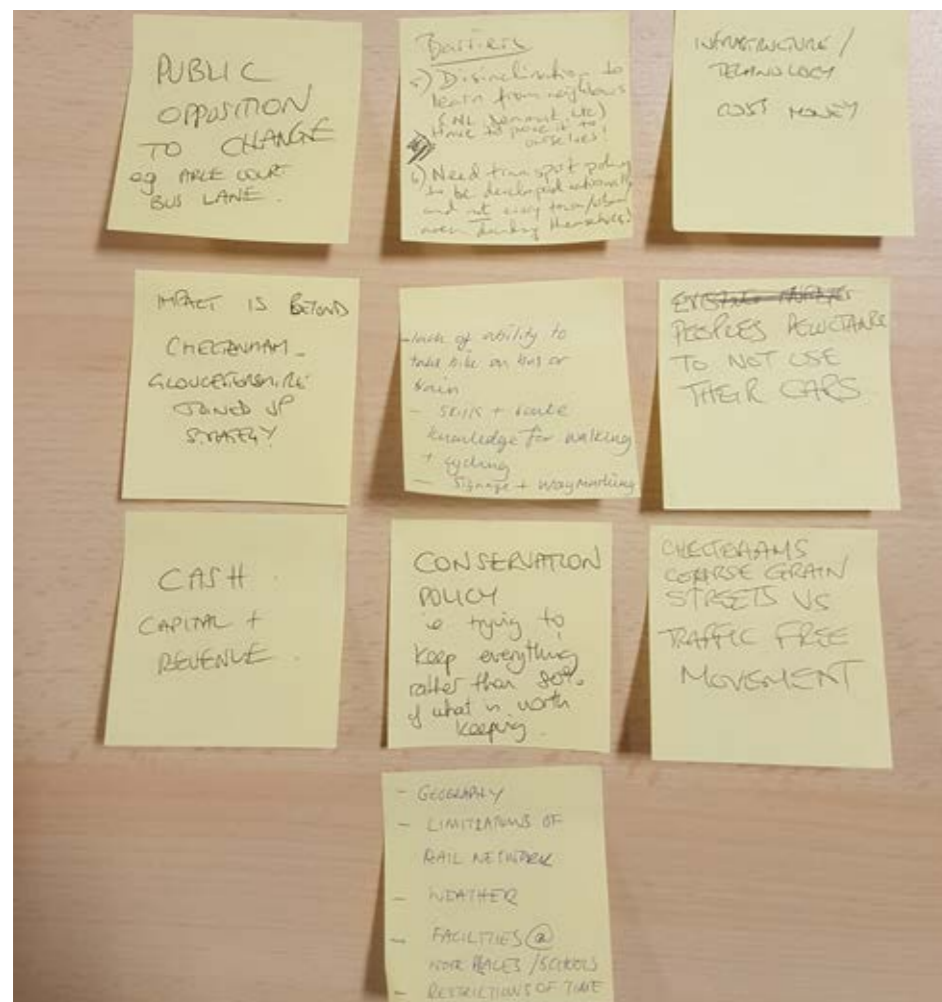 PUBLIC
OPPOSITION
TO CHANGE
eg ARLE COURT
BUS LANE.
Barriers
5) Disinclination to
learn from neighbours
(NL, Denmark, etc)
Have to prove it to
ourselves!
6) Need transport policy
to be developed nationally
and not every town/urban
area themselves!
INFRASTRUCTURE /
TECHNOLOGY
COST MONEY
IMPACT IS BEYOND
CHELTENHAM -
GLOUCESTERSHIRE
JOINED UP
STRATEGY
- lack of ability to
take bike on bus or
train
- skills + route
knowledge for walking
+ cycling
- signage + waymarking
PEOPLES RELUCTANCE
TO NOT USE
THEIR CARS
CASH
CAPITAL +
REVENUE.
CONSERVATION
POLICY
ie trying to
keep everything
rather than 80%
of what is worth
keeping.
CHELTENHAMS
COARSE GRAIN
STREETS VS
TRAFFIC FREE
MOVEMENT
- GEOGRAPHY
- LIMITATIONS OF
RAIL NETWORK
- WEATHER
- FACILITIES @
WORK PLACES / SCHOOLS
- RESTRICTIONS OF TIME